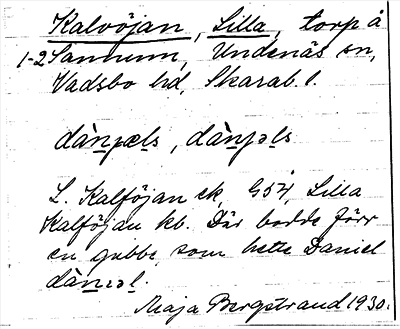 Kalvöjan, Lilla, torp å
1-2 Sannum, Undenäs sn,
Vadsbo hd, Skarab. l.
dàn̲pæl̲s, dàn̲pəl̲s
L. Kalföjan ek, G 54, Lilla
Kalföjan kb. Där bodde förr
en gubbe, som hette Daniel
dàn̲əl.
Maja Bergstrand 1930.